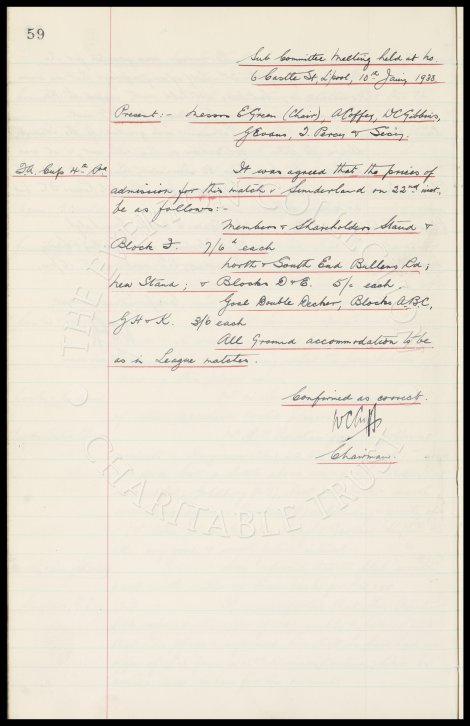 59
Sub Committee Meeting held at No.
6 Castle St, L'pool, 10th Jany, 1938.
Present:- Messrs E Green (Chair), A Coffey, W C Gibbins,
J Evans, T. Percy & Sec'y.
F.A. Cup 4th Rd It was agreed that the prices of
admission for this match v Sunderland on 22nd inst.
be as follows:-
Members & Shareholders Stand &
Block F. 7/6d each
North & South End Bullens Rd;
New Stand; & Blocks D & E. 5/- each.
Goal Double Decker, Blocks A.B.C,
G H & K. 3/0 each
All Ground accommodation to be
as in League matches.
Confirmed as correct.
W C Cuff
Chairman.
THE EVERTON COLLECTION
CHARITABLE TRUST